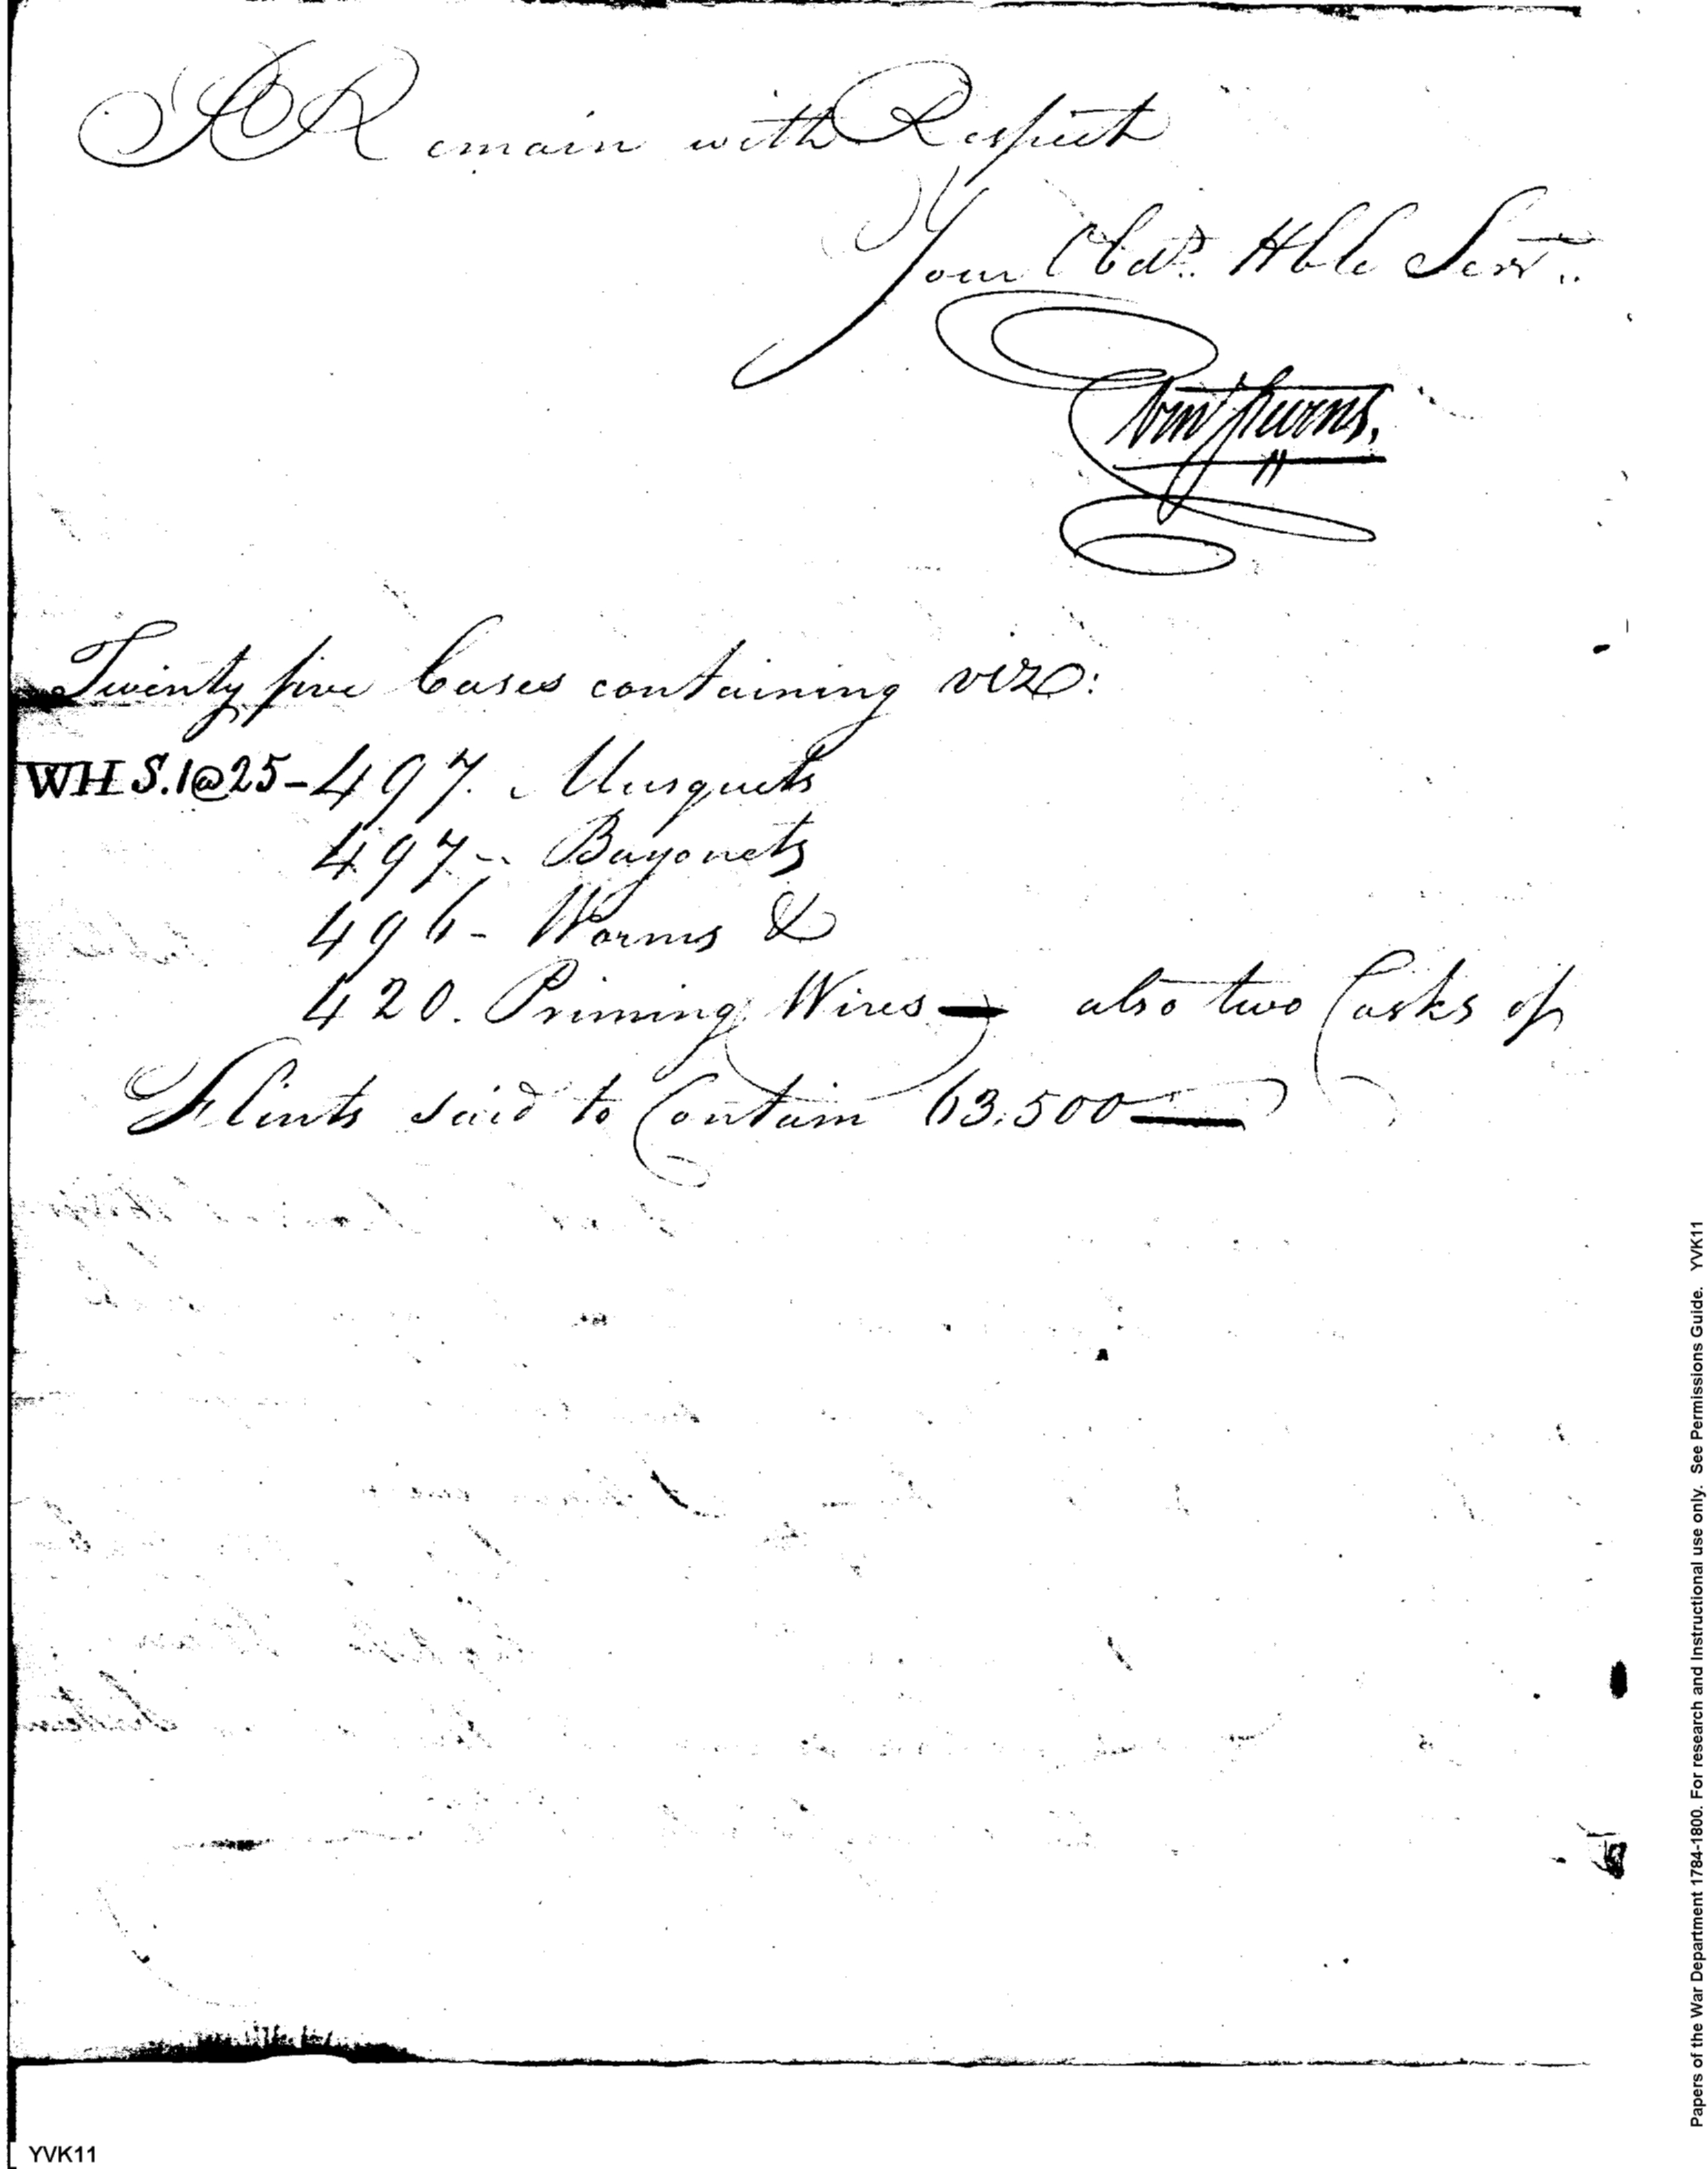 I Remain with Respect
Your Obdt. Hble Servt.
Twenty five Cases containing viz:
WHS. 1@25 - 497. Musquets
497 - Bayonets
496 - Worms &
420. Priming Wires — also two Casks of
Flints said to Contain 63.500 —
YVK11
Papers of the War Department 1784-1800. For research and Instructional use only. See Permissions Guide. YVK11